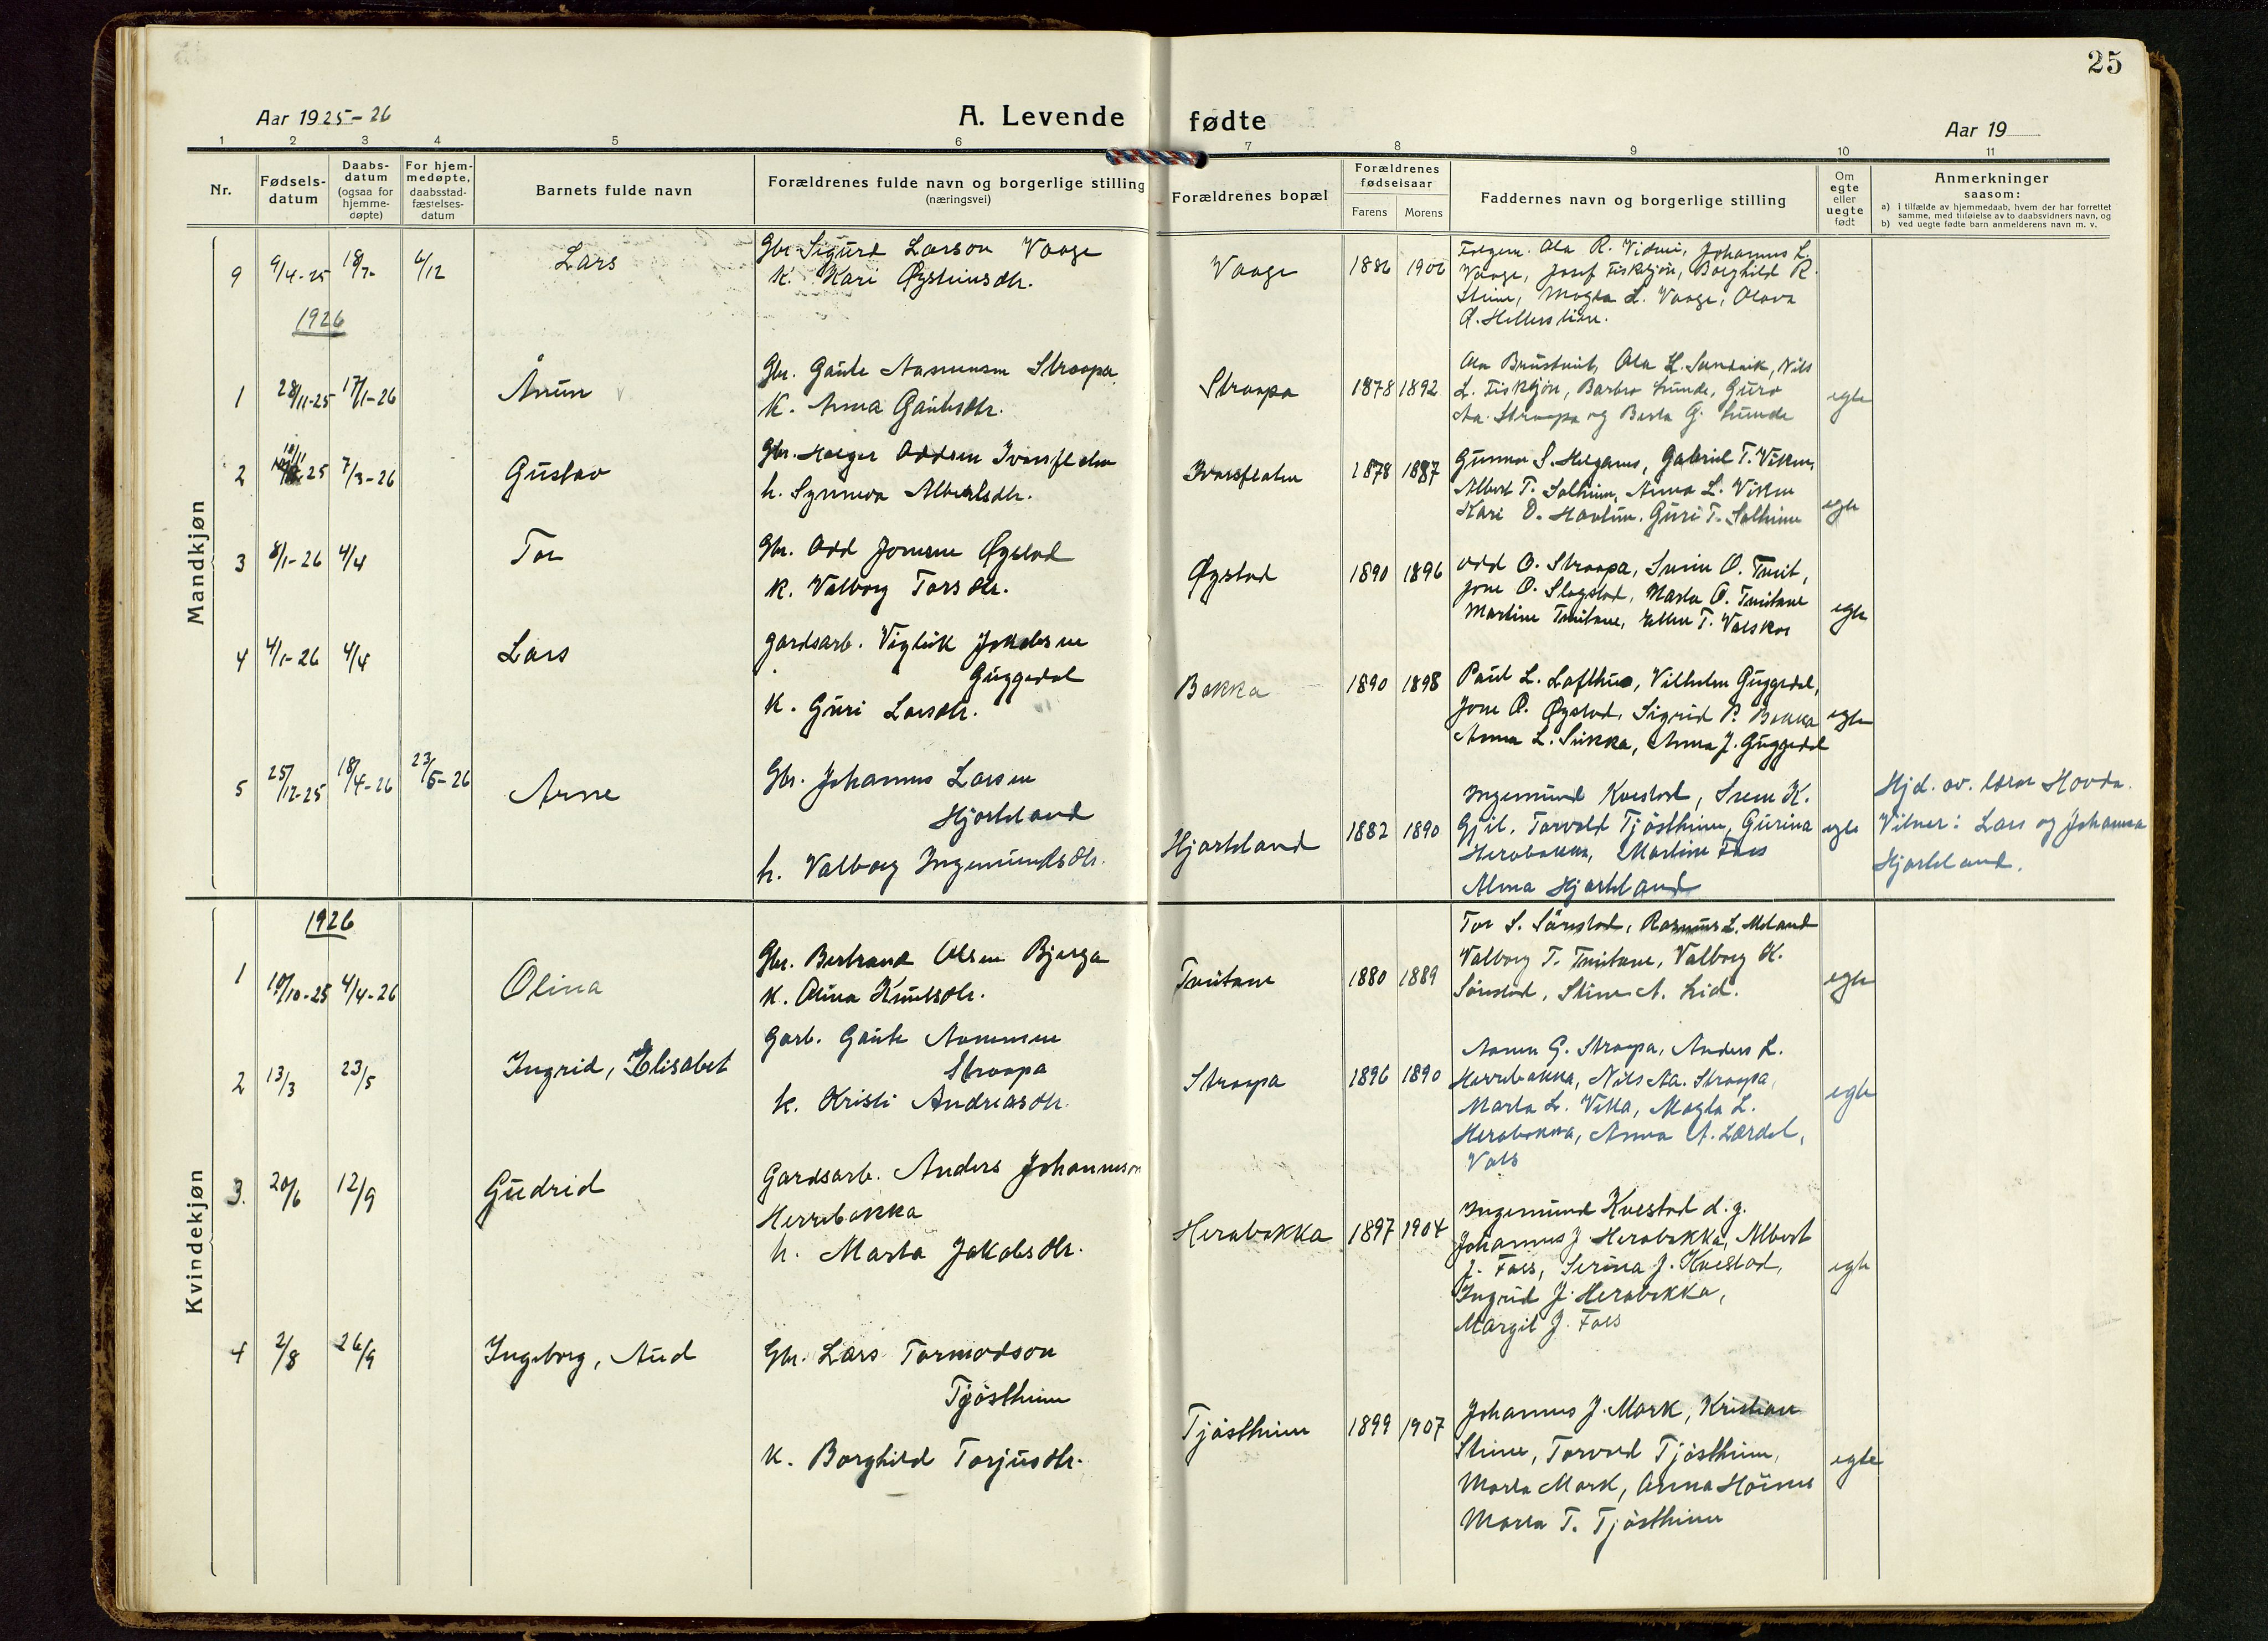 25
Aar 1925-26
A. Levende fødte
Aar 19
1 2 3 4 5 6 7 8 9 10 11
Nr.
Fødsels-datum
Daabs-datum (ogsaa for hjemme-døpte)
For hjem-medøpte, daabsstad-fæstelses-datum
Barnets fulde navn
Forældrenes fulde navn og borgerlige stilling
(næringsvei)
Forældrenes bopæl
Forældrenes fødselsaar
Farens Morens
Faddernes navn og borgerlige stilling
Om egte eller uegte født
Anmerkninger
saasom:
a) i tilfælde av hjemmedaab, hvem der har forrettet
samme, med tilføielse av to daabsvidners navn, og
b) ved uegte fødte barn anmelderens navn m. v.
Mandkjøn
9 9/4-25 18/7- 6/12 Lars
Gbr. Sigurd Larson Vaage
K. Kari Øysteinsdtr.
Vaage 1886 1906
Ola R. Johannes L.
Vaage, Josef Borghild R.
Steine, Magla L. Vaage, Olava
1926
1 28/11-25 17/1-26 Ånun
Gbr. Gaute Aanunsen Straapa
K. Anna Gautesdtr.
Straapa 1878 1892
Nils
L. Barbro Lunde, Guro
Aa. Straapa og Berta G. Lunde
egte
2 10/11 25 7/3-26 Gustav
Gbr. Holger Oddsen Ivarsflaten
h. Synneva Albertsdtr.
Ivarsflaten 1878 1887
Gunnar S. Gabriel T. Viken,
Albert T. Solheim, Anna L. Viken
Kari O. Guri T. Solheim
egte
3 8/1-26 4/4 Tor
Gbr. Odd Jonsen Øystad
K. Valborg Torsdtr.
Øystad 1890 1896
Odd O. Straapa, O. Tveit,
Jone O. Slogstad, Marta O. Tveitane
Martine Tveitane, Ellen T.
egte
4 4/1-26 4/4 Lars
gardsarb. Vigleik Jakobsen
Guggedal
K. Guri Larsdtr.
Bakka 1890 1898
Paul L. Lofthus, Vilhelm Guggedal,
Jone O. Øystad, Sigrid P. Bakka
Anna L. Anna J. Guggedal
egte
5 25/12-25 18/4-26 23/5-26 Arne
Gbr. Johannes Larsen
Hjorteland
h. Valborg Ingemundsdtr.
Hjorteland 1882 1890
Ingemund Kvestad, K.
Gjil, Torvald Tjøstheim, Gurina
Herabakka, Martine Foss
Alma Hjorteland
egte
Hjd. av. lærar Hovda.
Vitner: Lars og Johanna
Hjorteland.
Kvindekjøn
1926
1 19/10-25 4/4-26 Olina
Gbr. Bertrand Olsen Bjerga
K. Olina Knutsdtr.
Tveitane 1880 1889
Tor S. Sørestad, Rasmus L. Meland
Valborg T. Tveitane, Valborg K.
Sørestad, Stine A. Lid.
egte
2 13/3 23/5 Ingrid, Elisabet
Garb. Gaute Aanunsen
Straapa
k. Kristi Andreasdtr.
Straapa 1896 1890
Aanen G. Straapa, Anders L.
Herrebakka, Nils Aa. Straapa,
Marta L. Vika, Magla L.
Herabakka, Anna A. Lærdal,
egte
3. 20/6 12/9 Gudrid
Gardsarb. Anders Johannesson
Herrebakka
h. Marta Jakobsdtr.
Herabakka 1897 1904
Ingemund Kvestad d.y.
Johannes J. Herabakka, Albert
J. Foss, Serina J. Kvestad,
Ingrid J. Herabakka,
Margit J. Foss
egte
4 2/8 26/9 Ingeborg, Aud
Gbr. Lars Tormodson
Tjøstheim
K. Borghild Torjusdtr.
Tjøstheim 1899 1907
Johannes J. Mork, Kristian
Steine, Torvald Tjøstheim,
Marta Mork, Anna
Marta T. Tjøstheim
egte